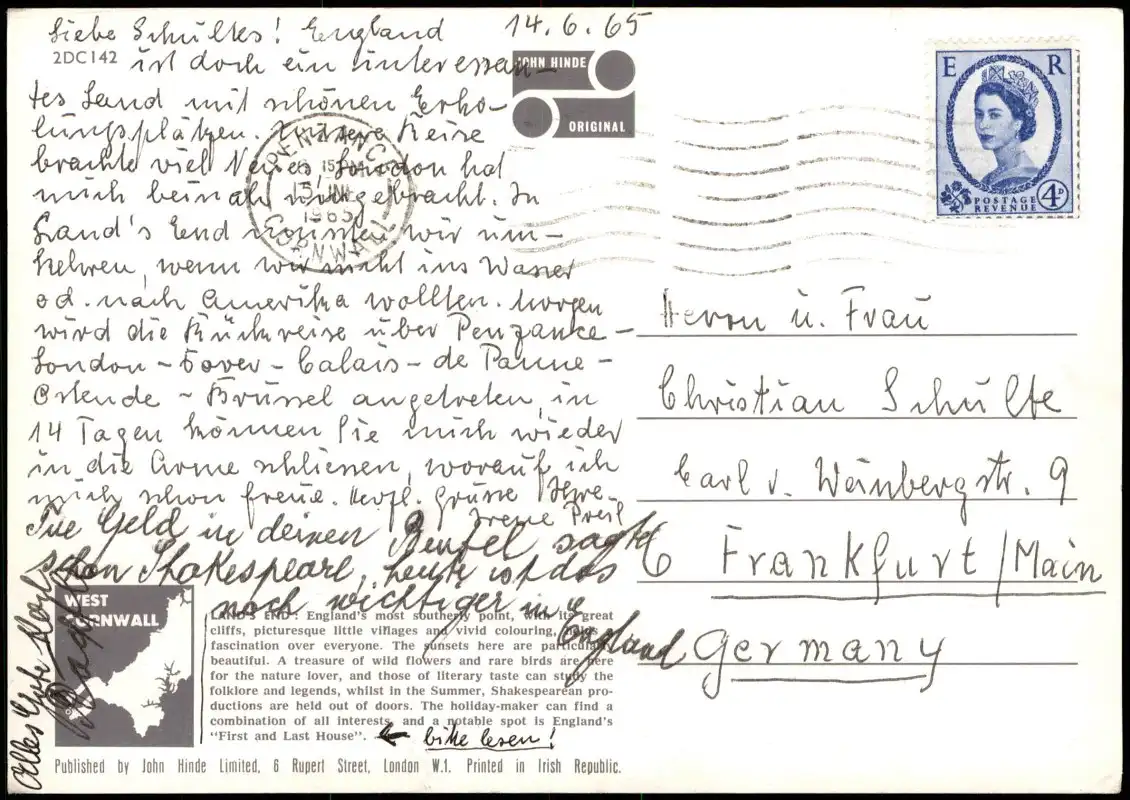 14.6.65
Liebe Schultes! England
2DC142
ist doch ein interessan-
tes Land mit schönen Erho-
lungsplätzen. Unsere Reise
brachte viel Neues. London hat
mich beinah umgebracht. In
Land's End mussten wir um-
kehren, wenn wir nicht ins Wasser
od. nach Amerika wollten. Morgen
wird die Rückreise über Penzance-
London-Dover-Calais-de Panne-
Ostende-Brüssel angetreten, in
14 Tagen können Sie mich wieder
in die Arme schliessen, worauf ich
mich schon freue. Herzl. Grüsse Ihre
Irene Preil
Tue Geld in deinen Beutel sagte
schon Shakespeare, heute ist das
noch wichtiger in
England
Alles Gute
JOHN HINDE
ORIGINAL
PENZANCE
15 JUN
1965
CORNWALL
E R
POSTAGE
REVENUE
4D
Herrn u. Frau
Christian Schulte
Carl v. Weinbergstr. 9
6 Frankfurt/Main
Germany
WEST
CORNWALL
LAND'S END: England's most southerly point, with its great
cliffs, picturesque little villages and vivid colouring, holds
fascination over everyone. The sunsets here are particularly
beautiful. A treasure of wild flowers and rare birds are here
for the nature lover, and those of literary taste can study the
folklore and legends, whilst in the Summer, Shakespearean pro-
ductions are held out of doors. The holiday-maker can find a
combination of all interests, and a notable spot is England's
"First and Last House".
← bitte lesen!
Published by John Hinde Limited, 6 Rupert Street, London W.1. Printed in Irish Republic.